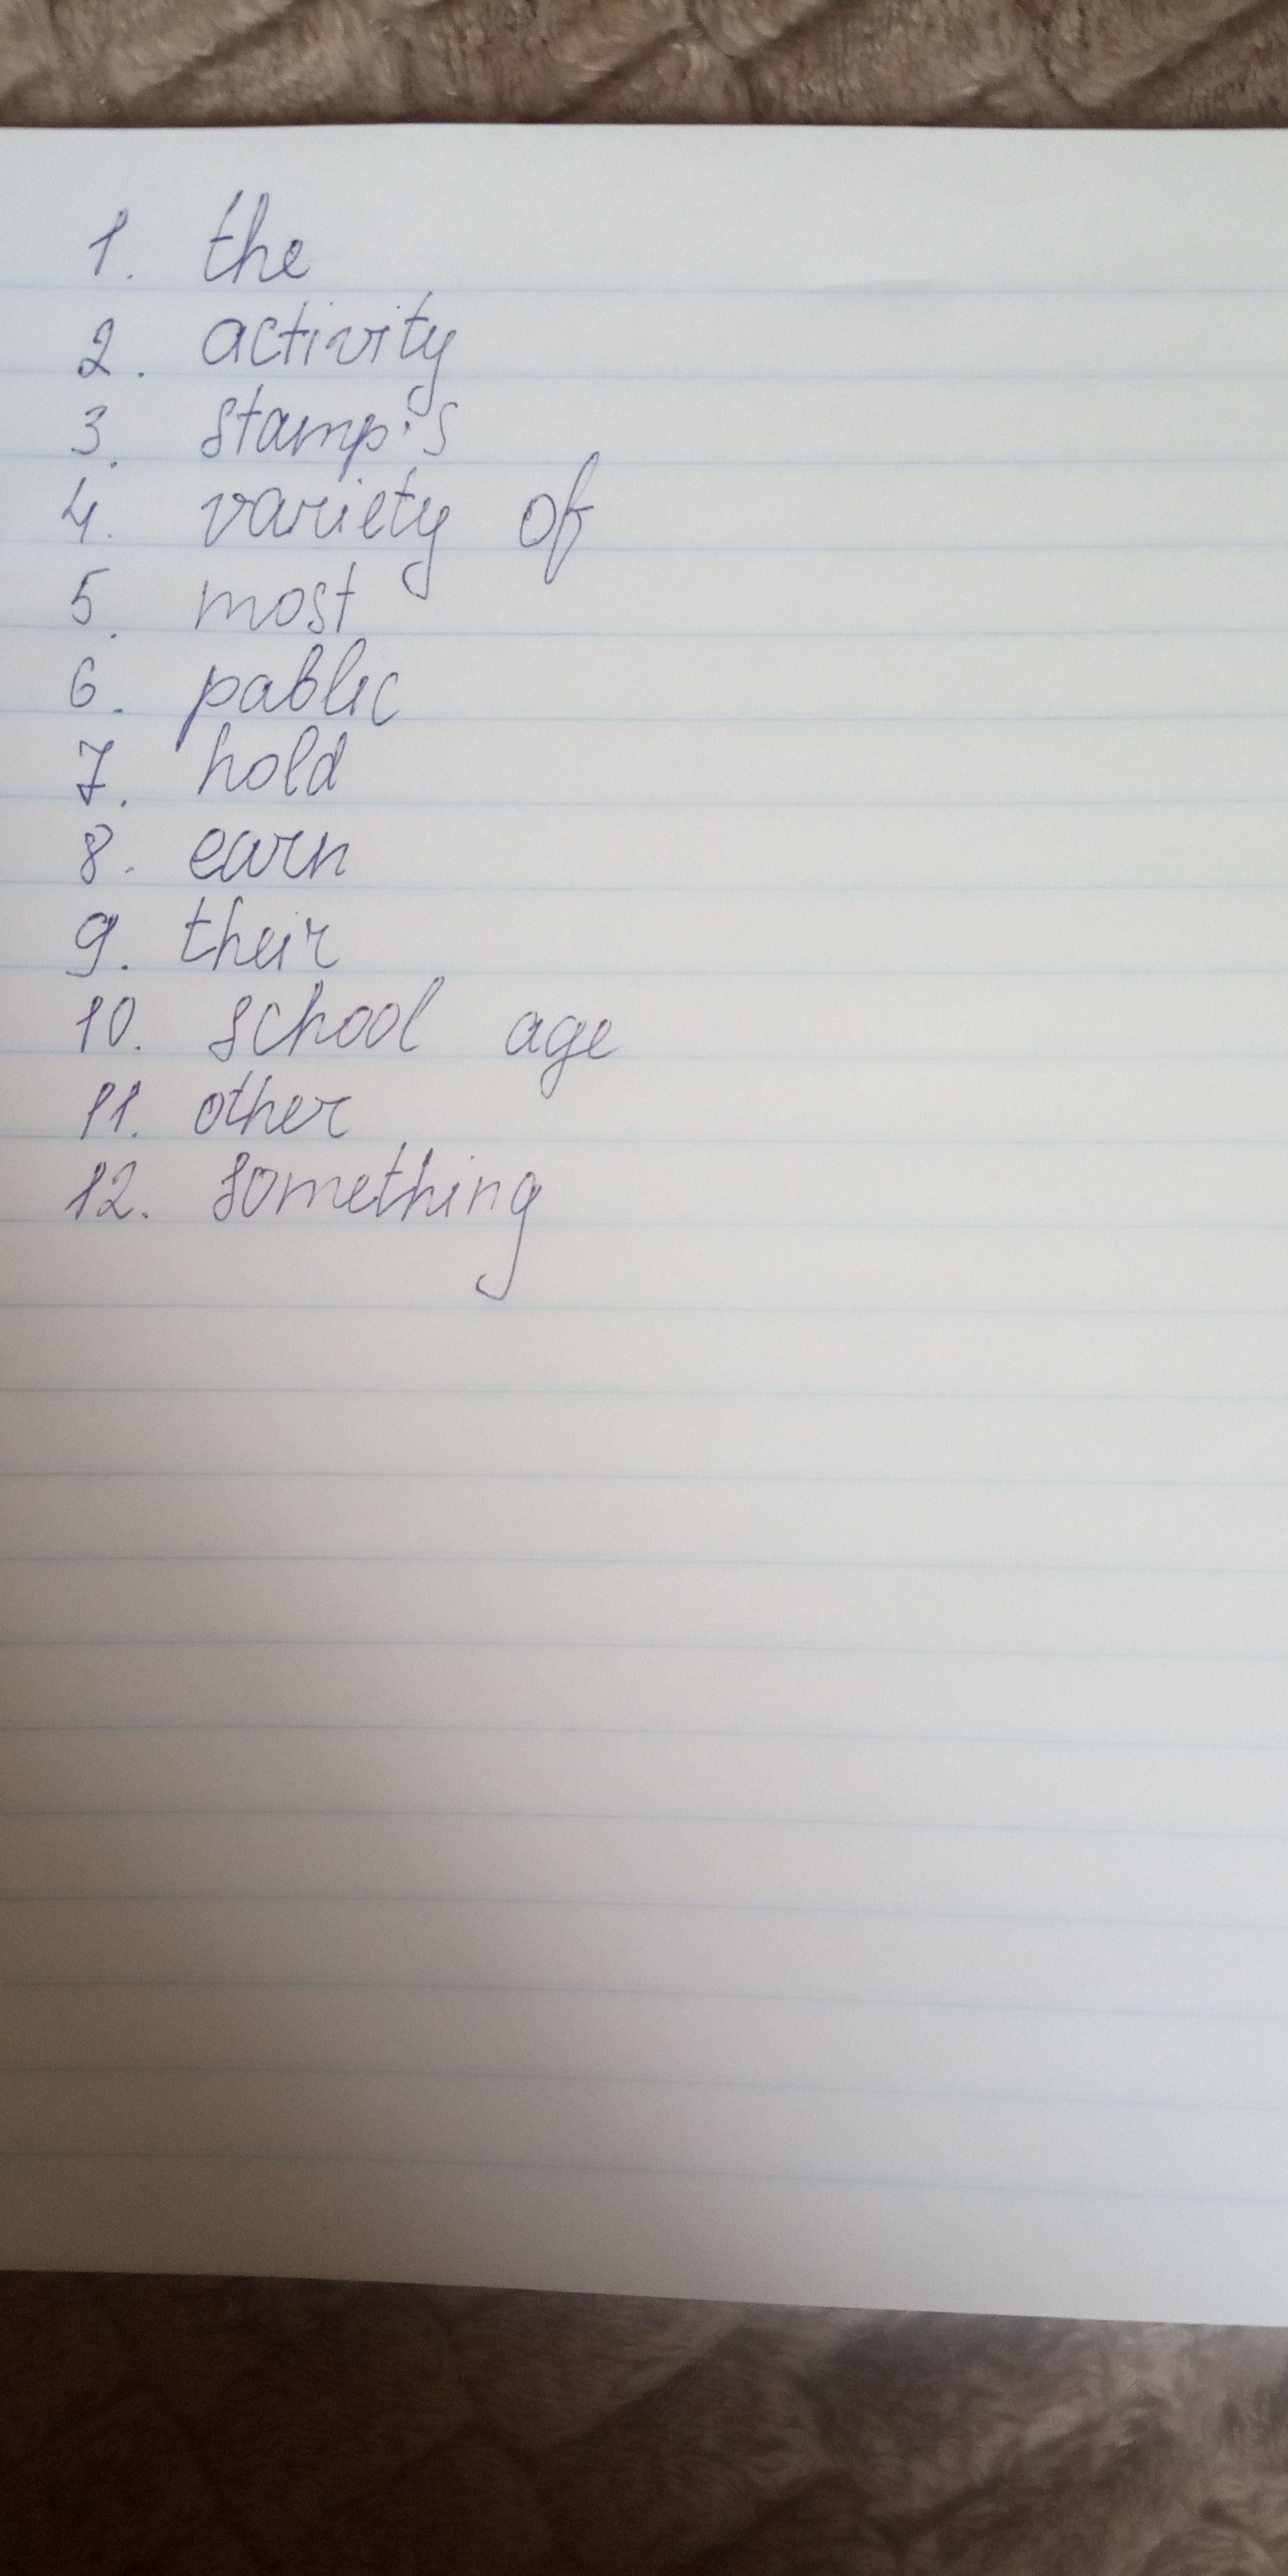 1. the
2. activity
3. stamp's
4. variety of
5. most
6. pablic
7. hold
8. earn
9. their
10. school age
11. other
12. something